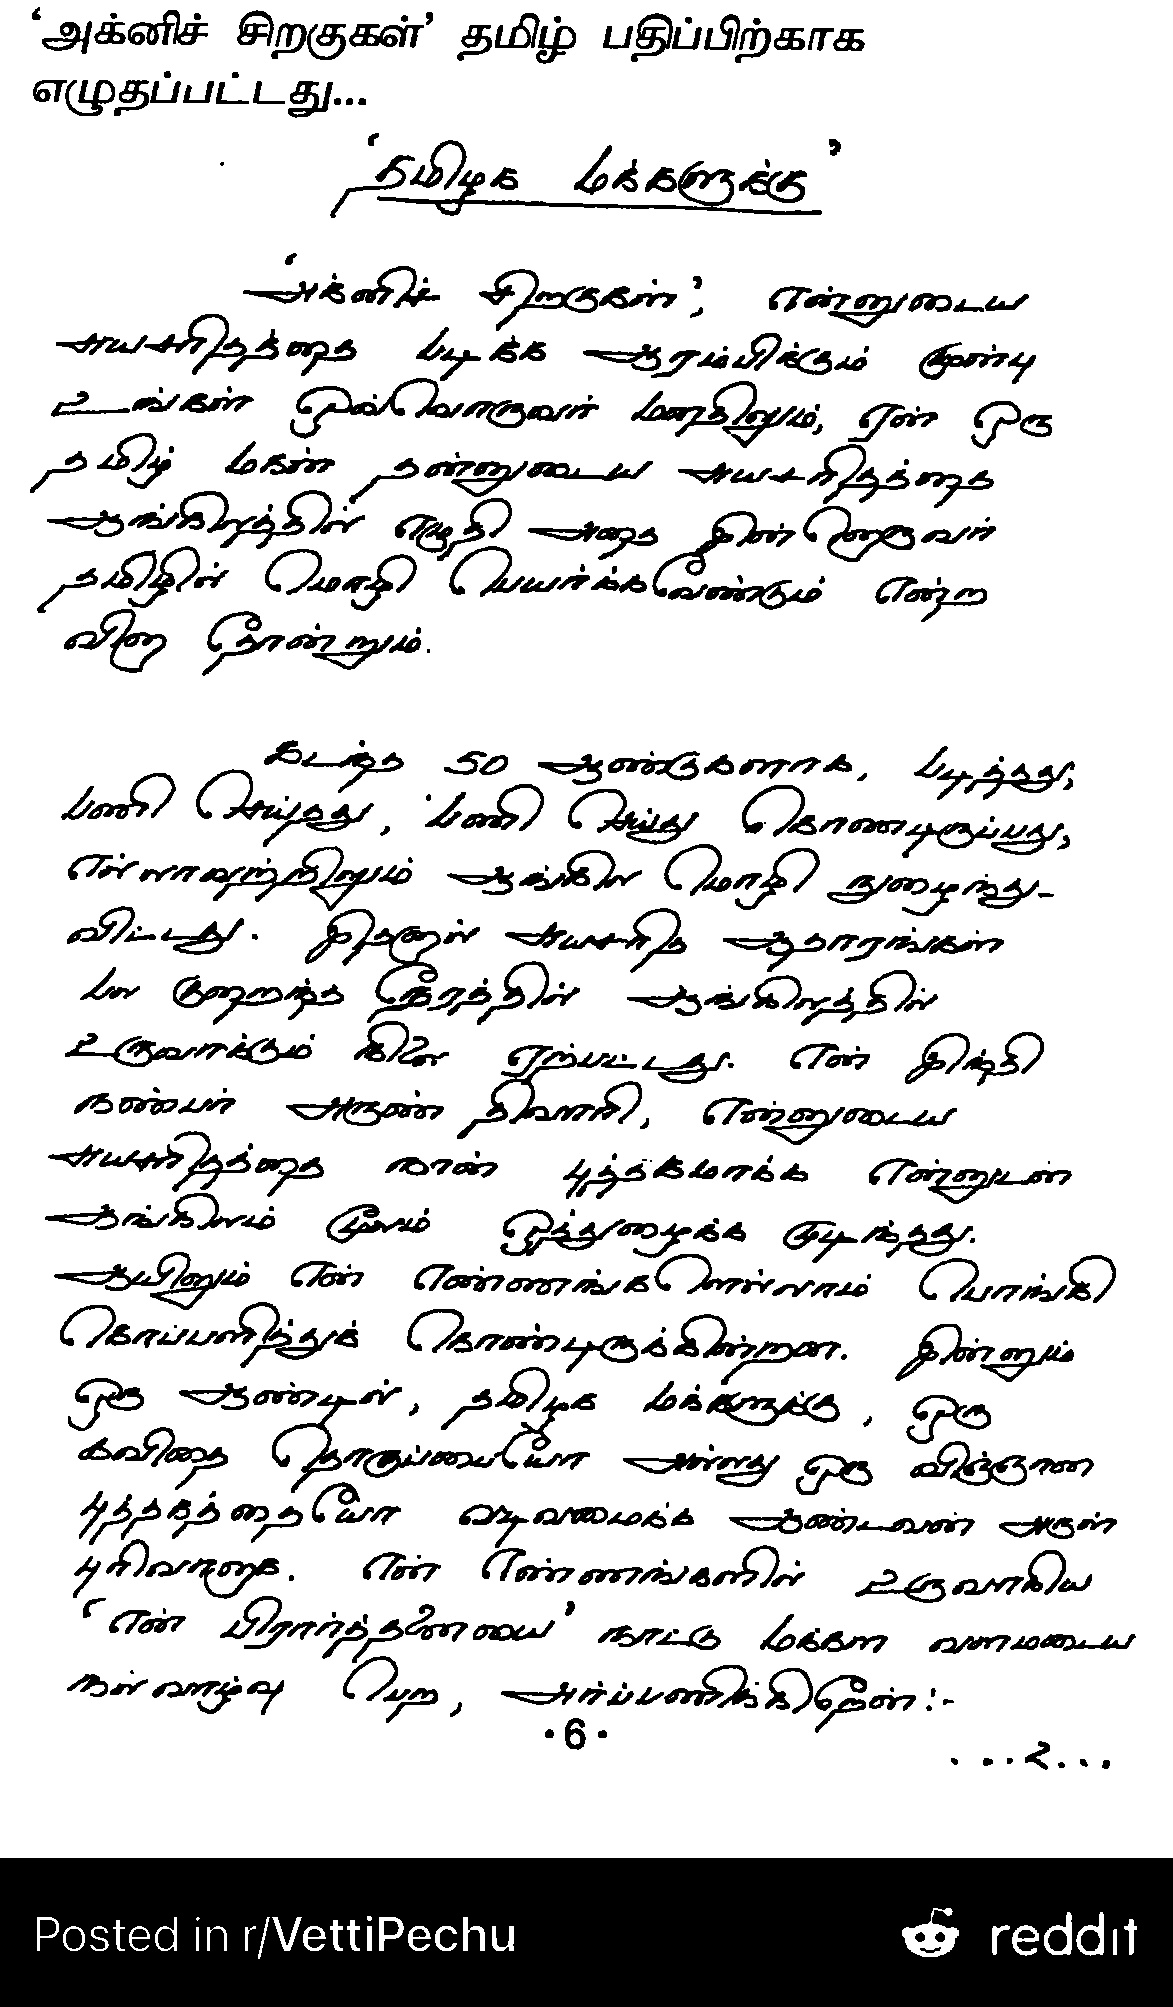 ‘அக்னிச் சிறகுகள்’ தமிழ் பதிப்பிற்காக
எழுதப்பட்டது...
‘தமிழக மக்களுக்கு’
‘அக்னிச் சிறகுகள்’, என்னுடைய
சுயசரிதத்தை படிக்க ஆரம்பிக்கும் முன்பு
உங்கள் ஒவ்வொருவர் மனதிலும், ஏன் ஒரு
தமிழ் மகன் தன்னுடைய சுயசரிதத்தை
ஆங்கிலத்தில் எழுதி அதை இன்னொருவர்
தமிழில் மொழி பெயர்க்கவேண்டும் என்ற
வினா தோன்றும்.
கடந்த 50 ஆண்டுகளாக, படித்தது,
பணி செய்தது, பணி செய்து கொண்டிருப்பது,
எல்லாவற்றிலும் ஆங்கில மொழி நுழைந்து-
விட்டது. இதனால் சுயசரித ஆதாரங்கள்
பல குறைந்த நேரத்தில் ஆங்கிலத்தில்
உருவாக்கும் நிலை ஏற்பட்டது. என் இந்தி
நண்பர் அருண் திவாரி, என்னுடைய
சுயசரிதத்தை நான் புத்தகமாக்க என்னுடன்
ஆங்கிலம் மூலம் ஒத்துழைக்க முடிந்தது.
ஆயினும் என் எண்ணங்களெல்லாம் பொங்கி
கொப்பளித்துக் கொண்டிருக்கின்றன. இன்னும்
ஒரு ஆண்டில், தமிழக மக்களுக்கு, ஒரு
கவிதை தொகுப்பையோ அல்லது ஒரு விஞ்ஞான
புத்தகத்தையோ வடிவமைக்க ஆண்டவன் அருள்
புரிவானாக. என் எண்ணங்களில் உருவாகிய
‘என் பிரார்த்தனையை’ நாட்டு மக்கள் வளமடைய
நல்வாழ்வு பெற, அர்ப்பணிக்கிறேன்:-
·6·
...2...
Posted in r/VettiPechu
reddit